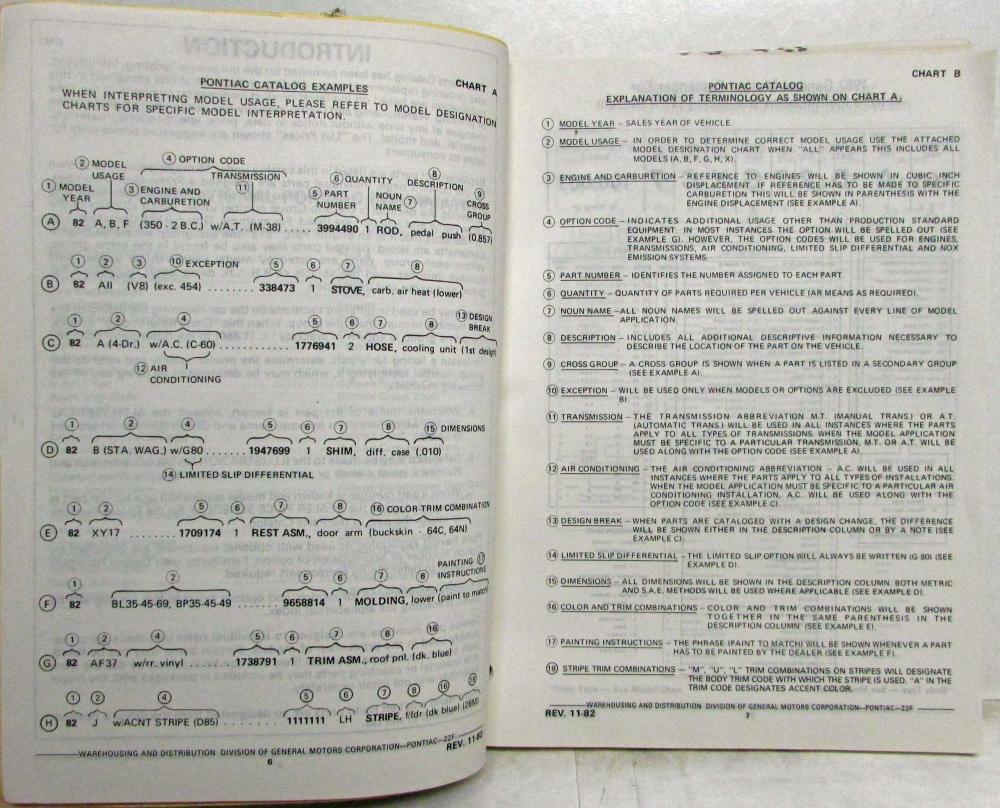 CHART A
PONTIAC CATALOG EXAMPLES
WHEN INTERPRETING MODEL USAGE, PLEASE REFER TO MODEL DESIGNATION
CHARTS FOR SPECIFIC MODEL INTERPRETATION.
④ OPTION CODE
② MODEL USAGE
TRANSMISSION ⑪
⑥ QUANTITY
⑧ DESCRIPTION
① MODEL YEAR
③ ENGINE AND CARBURETION
⑤ PART NUMBER
NOUN NAME ⑦
⑨ CROSS GROUP
Ⓐ 82 A, B, F (350 - 2 B.C.) w/A.T. (M-38) .... 3994490 1 ROD, pedal push (0.857)
① ② ③ ⑩ EXCEPTION ⑤ ⑥ ⑦ ⑧
Ⓑ 82 All (V8) (exc. 454) ........ 338473 1 STOVE, carb. air heat (lower)
① ② ④ ⑤ ⑥ ⑦ ⑧ ⑬ DESIGN BREAK
Ⓒ 82 A (4-Dr.) w/A.C. (C-60) ............ 1776941 2 HOSE, cooling unit (1st design)
⑫ AIR CONDITIONING
① ② ④ ⑤ ⑥ ⑦ ⑧ ⑮ DIMENSIONS
Ⓓ 82 B (STA. WAG.) w/G80 ....... 1947699 1 SHIM, diff. case (.010)
⑭ LIMITED SLIP DIFFERENTIAL
① ② ⑤ ⑥ ⑦ ⑧ ⑯ COLOR-TRIM COMBINATION
Ⓔ 82 XY17 ......... 1709174 1 REST ASM., door arm (buckskin - 64C, 64N)
① ② ⑤ ⑥ ⑦ ⑧ PAINTING ⑰ INSTRUCTIONS
Ⓕ 82 BL35-45-69, BP35-45-49 ....... 9658814 1 MOLDING, lower (paint to match)
① ② ④ ⑤ ⑥ ⑦ ⑧ ⑯
Ⓖ 82 AF37 w/rr. vinyl ..... 1738791 1 TRIM ASM., roof pnl. (dk. blue)
① ② ④ ⑤ ⑥ ⑦ ⑧ ⑯ ⑱
Ⓗ 82 J w/ACNT STRIPE (D85) ......... 1111111 LH STRIPE, f/fdr (dk blue) (26M)
WAREHOUSING AND DISTRIBUTION DIVISION OF GENERAL MOTORS CORPORATION—PONTIAC—22F
REV. 11-82
6
CHART B
PONTIAC CATALOG
EXPLANATION OF TERMINOLOGY AS SHOWN ON CHART A.
① MODEL YEAR – SALES YEAR OF VEHICLE.
② MODEL USAGE – IN ORDER TO DETERMINE CORRECT MODEL USAGE USE THE ATTACHED
MODEL DESIGNATION CHART. WHEN "ALL" APPEARS THIS INCLUDES ALL
MODELS (A, B, F, G, H, X).
③ ENGINE AND CARBURETION – REFERENCE TO ENGINES WILL BE SHOWN IN CUBIC INCH
DISPLACEMENT. IF REFERENCE HAS TO BE MADE TO SPECIFIC
CARBURETION THIS WILL BE SHOWN IN PARENTHESIS WITH THE
ENGINE DISPLACEMENT (SEE EXAMPLE A).
④ OPTION CODE – INDICATES ADDITIONAL USAGE OTHER THAN PRODUCTION STANDARD
EQUIPMENT. IN MOST INSTANCES THE OPTION WILL BE SPELLED OUT (SEE
EXAMPLE G). HOWEVER, THE OPTION CODES WILL BE USED FOR ENGINES,
TRANSMISSIONS, AIR CONDITIONING, LIMITED SLIP DIFFERENTIAL AND NOX
EMISSION SYSTEMS.
⑤ PART NUMBER – IDENTIFIES THE NUMBER ASSIGNED TO EACH PART.
⑥ QUANTITY – QUANTITY OF PARTS REQUIRED PER VEHICLE (AR MEANS AS REQUIRED).
⑦ NOUN NAME – ALL NOUN NAMES WILL BE SPELLED OUT AGAINST EVERY LINE OF MODEL
APPLICATION.
⑧ DESCRIPTION – INCLUDES ALL ADDITIONAL DESCRIPTIVE INFORMATION NECESSARY TO
DESCRIBE THE LOCATION OF THE PART ON THE VEHICLE.
⑨ CROSS GROUP – A CROSS GROUP IS SHOWN WHEN A PART IS LISTED IN A SECONDARY GROUP
(SEE EXAMPLE A).
⑩ EXCEPTION – WILL BE USED ONLY WHEN MODELS OR OPTIONS ARE EXCLUDED (SEE EXAMPLE
B).
⑪ TRANSMISSION – THE TRANSMISSION ABBREVIATION M.T. (MANUAL TRANS.) OR A.T.
(AUTOMATIC TRANS.) WILL BE USED IN ALL INSTANCES WHERE THE PARTS
APPLY TO ALL TYPES OF TRANSMISSIONS. WHEN THE MODEL APPLICATION
MUST BE SPECIFIC TO A PARTICULAR TRANSMISSION, M.T. OR A.T. WILL BE
USED ALONG WITH THE OPTION CODE (SEE EXAMPLE A)
⑫ AIR CONDITIONING – THE AIR CONDITIONING ABBREVIATION – A.C. WILL BE USED IN ALL
INSTANCES WHERE THE PARTS APPLY TO ALL TYPES OF INSTALLATIONS.
WHEN THE MODEL APPLICATION MUST BE SPECIFIC TO A PARTICULAR AIR
CONDITIONING INSTALLATION, A.C. WILL BE USED ALONG WITH THE
OPTION CODE (SEE EXAMPLE C).
⑬ DESIGN BREAK – WHEN PARTS ARE CATALOGED WITH A DESIGN CHANGE, THE DIFFERENCE
WILL BE SHOWN EITHER IN THE DESCRIPTION COLUMN OR BY A NOTE (SEE
EXAMPLE C)
⑭ LIMITED SLIP DIFFERENTIAL – THE LIMITED SLIP OPTION WILL ALWAYS BE WRITTEN (G-80) (SEE
EXAMPLE D).
⑮ DIMENSIONS – ALL DIMENSIONS WILL BE SHOWN IN THE DESCRIPTION COLUMN. BOTH METRIC
AND S.A.E. METHODS WILL BE USED WHERE APPLICABLE (SEE EXAMPLE D).
⑯ COLOR AND TRIM COMBINATIONS – COLOR AND TRIM COMBINATIONS WILL BE SHOWN
TOGETHER IN THE SAME PARENTHESIS IN THE
DESCRIPTION COLUMN (SEE EXAMPLE E).
⑰ PAINTING INSTRUCTIONS – THE PHRASE (PAINT TO MATCH) WILL BE SHOWN WHENEVER A PART
HAS TO BE PAINTED BY THE DEALER (SEE EXAMPLE F).
⑱ STRIPE TRIM COMBINATIONS – "M", "U", "L" TRIM COMBINATIONS ON STRIPES WILL DESIGNATE
THE BODY TRIM CODE WITH WHICH THE STRIPE IS USED. "A" IN THE
TRIM CODE DESIGNATES ACCENT COLOR.
WAREHOUSING AND DISTRIBUTION DIVISION OF GENERAL MOTORS CORPORATION—PONTIAC—22F
REV. 11-82
7